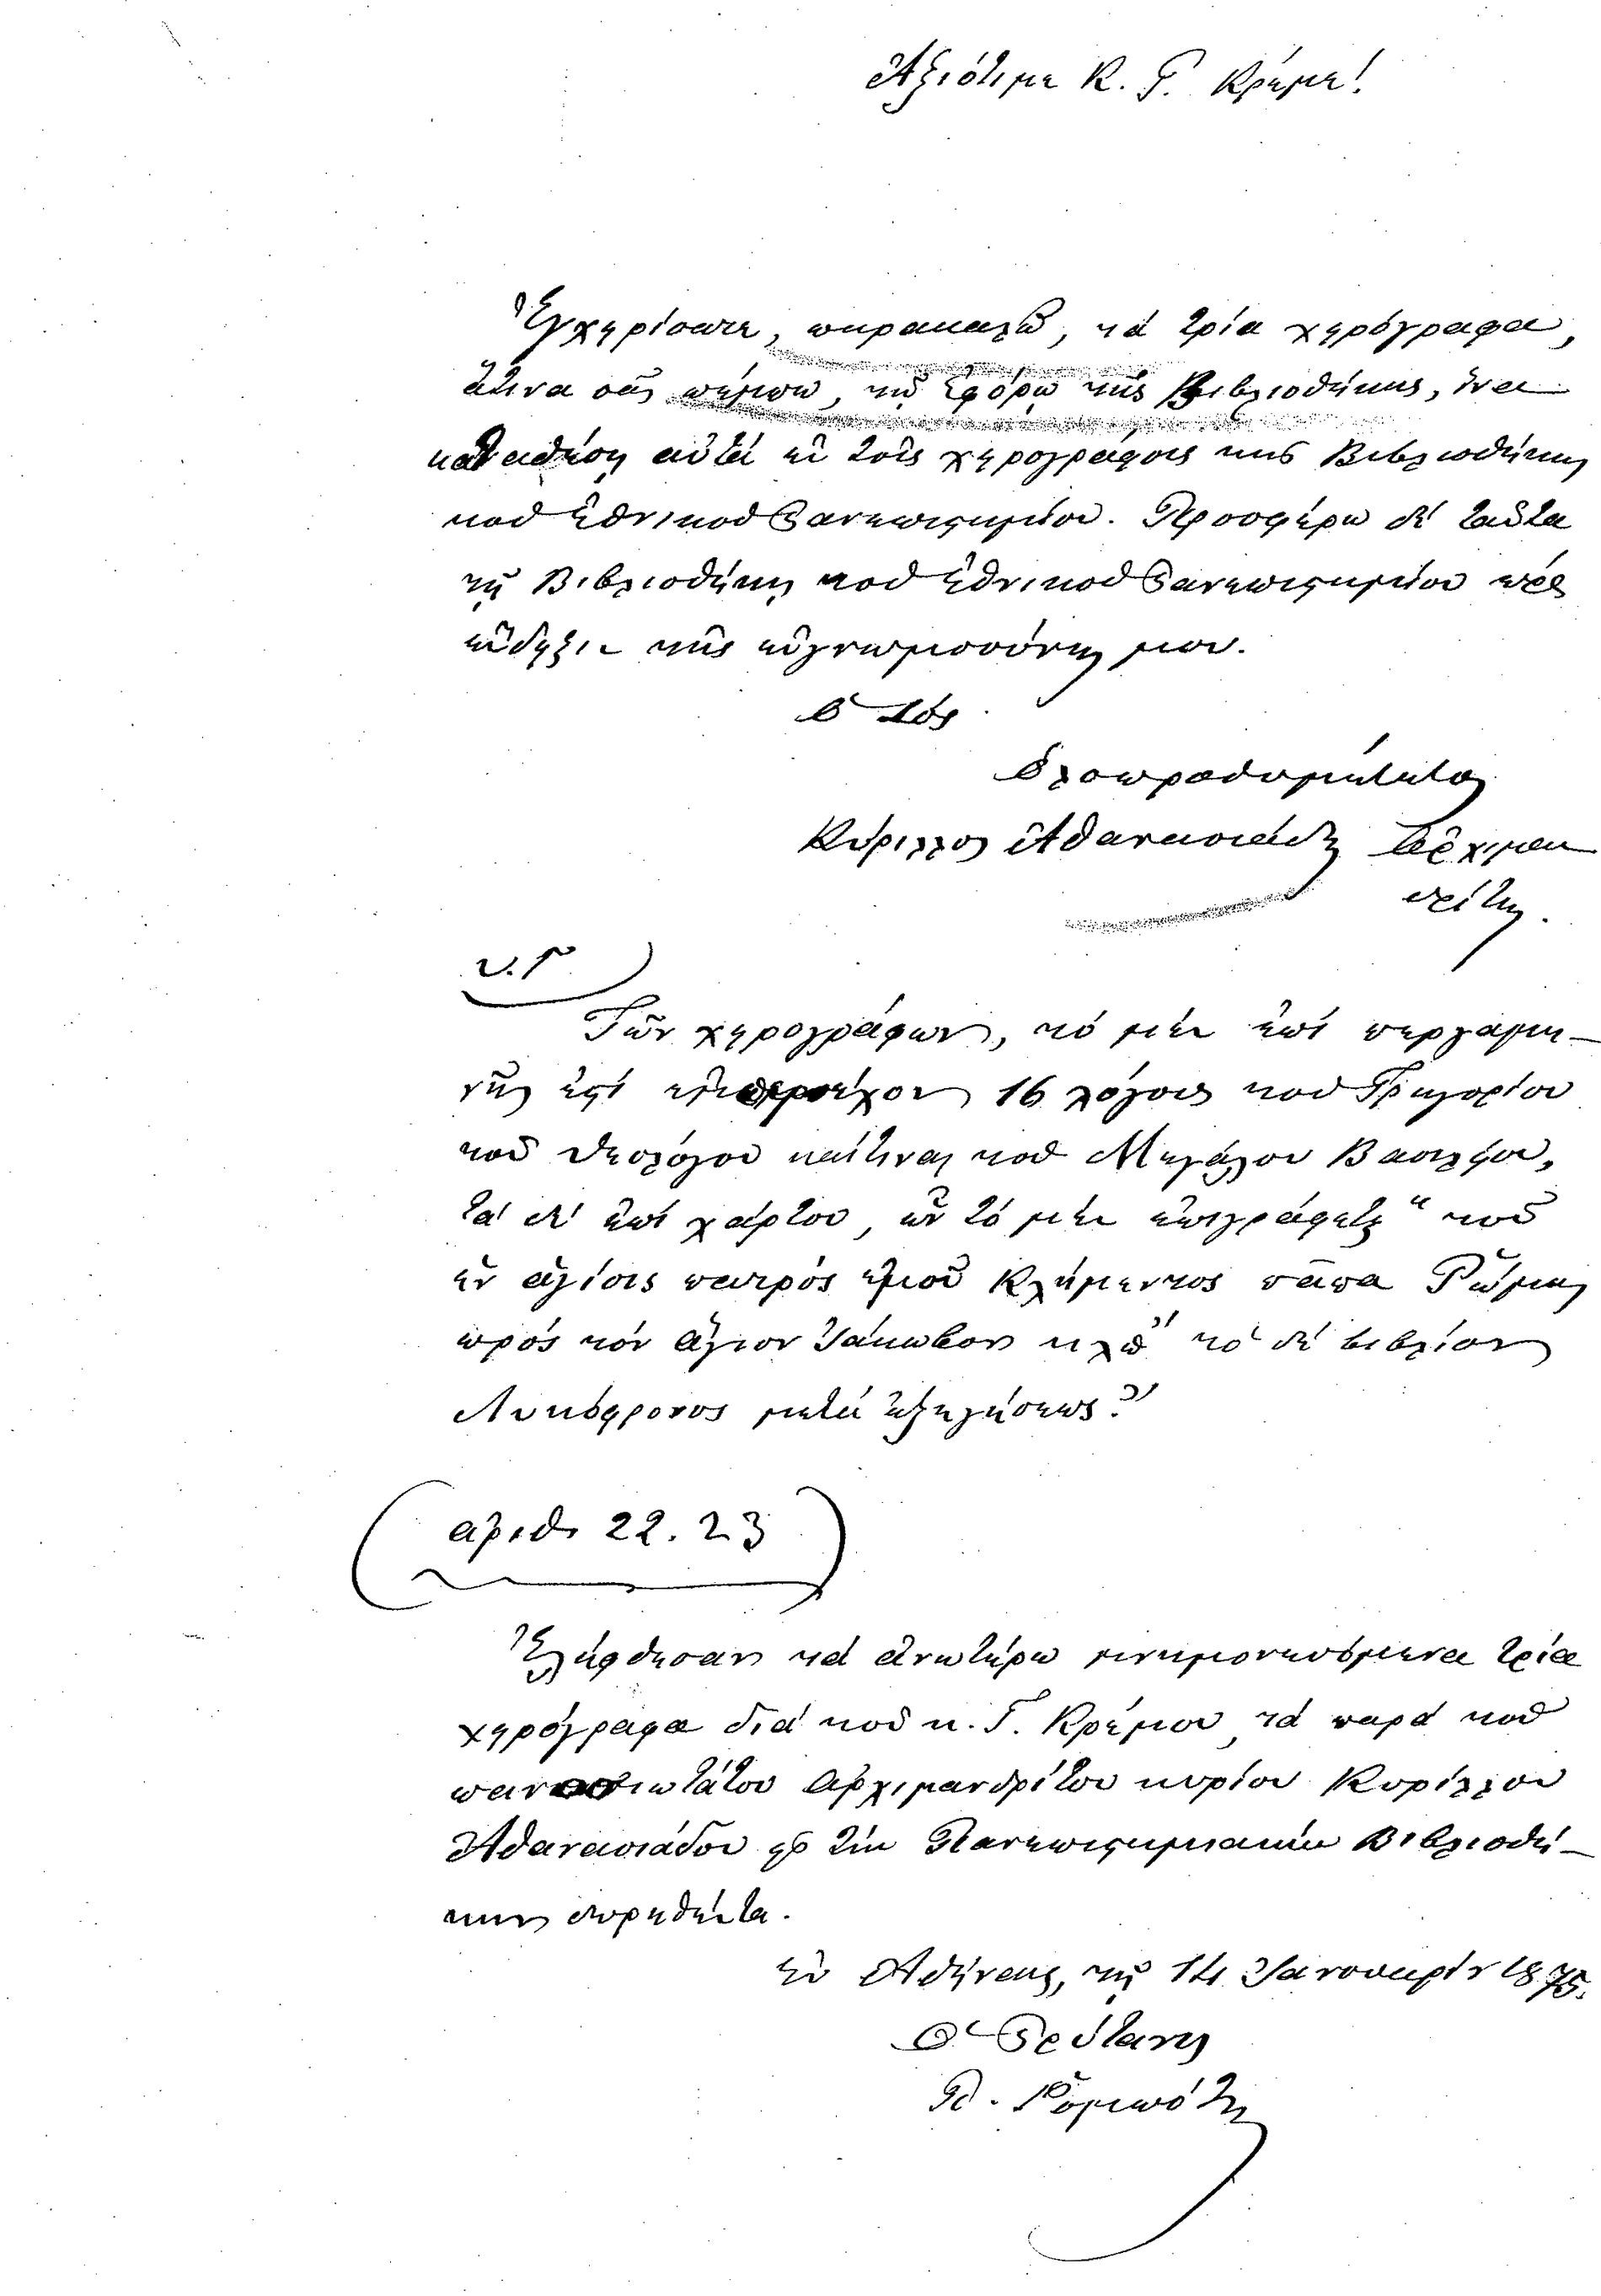 Ἀξιότιμε Κ. Γ. Κρέμε!
Ἐγχειρίσατε, παρακαλῶ, τὰ τρία χειρόγραφα,
ἅτινα σᾶς πέμπω, τῷ Ἐφόρῳ τῆς Βιβλιοθήκης, ἵνα
καταθέσῃ αὐτὰ ἐν τοῖς χειρογράφοις τῆς Βιβλιοθήκης
τοῦ Ἐθνικοῦ Πανεπιστημίου. Προσφέρω δὲ ταῦτα
τῇ Βιβλιοθήκῃ τοῦ Ἐθνικοῦ Πανεπιστημίου πρὸς
ἔνδειξιν τῆς εὐγνωμοσύνης μου.
ὁ σὸς
ὁλοπροθυμότατος
Κύριλλος Ἀθανασιάδης Ἀρχιμαν
δρίτης.
Υ. Γ
Τῶν χειρογράφων, τὸ μὲν ἐπὶ περγαμη-
νῆς ἐστὶ 16 λόγους τοῦ Γρηγορίου
τοῦ Θεολόγου καί τινας τοῦ Μεγάλου Βασιλείου,
τὰ δ' ἐπὶ χάρτου, ὧν τὸ μὲν ἐπιγράφεται "τοῦ
ἐν ἁγίοις πατρὸς ἡμῶν Κλήμεντος πάπα Ῥώμης
πρὸς τὸν ἅγιον Ἰάκωβον κλπ" τὸ δὲ βιβλίον
Λυκόφρονος μετὰ ἐξηγήσεως."
ἀριθ. 22. 23
Ἐλήφθησαν τὰ ἀνωτέρω μνημονευόμενα τρία
χειρόγραφα διὰ τοῦ κ. Γ. Κρέμου τὰ παρὰ τοῦ
πανοσιωτάτου ἀρχιμανδρίτου κυρίου Κυρίλλου
Ἀθανασιάδου εἰς τὴν Πανεπιστημιακὴν Βιβλιοθή-
κην δωρηθέντα.
ἐν Ἀθήναις, τῇ 14 Ἰανουαρίου 1875.
Ὁ